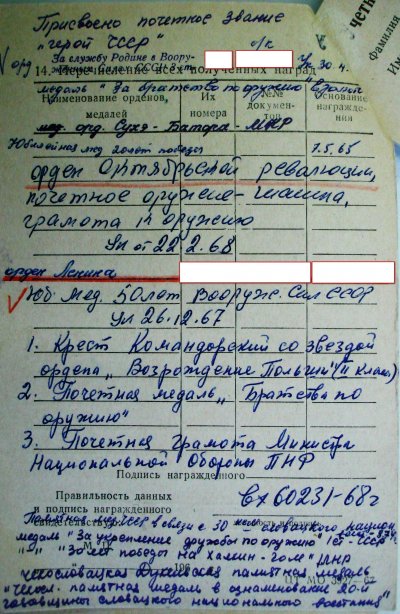 Присвоено почетное звание
"герой ЧССР"
За службу Родине в Воору-
14. Перечисление всех полученных наград
медаль "За братство по оружию"
Наименование орденов, медалей
Их номера
№№ документов
Основание награждения
орд Сухэ-Батора - МНР
Юбилейная мед 20 лет победы 7.5.65
орден Октябрьской революции,
почетное оружие - шашка,
грамота к оружию
Ук от 22.2.68
орден Ленина
Юб. мед. 50 лет Вооруж. Сил СССР
Ук 26.12.67
1. Крест Командорский со звездой
ордена „Возрождение Польши" (II класс)
2. Почетная медаль „Братства по
оружию"
3. Почетная грамота Министра
Национальной Обороны ПНР
Подпись награжденного
Правильность данных
и подпись награжденного
свидетельствую
Вх 60231-68г
медаль "За укрепление дружбы по оружию"
"30 лет победы на Халхин-Голе" МНР
Чехословацкая Дукельская памятная медаль
памятная медаль в ознаменование 20-й
годовщины словацкого национального восстания"